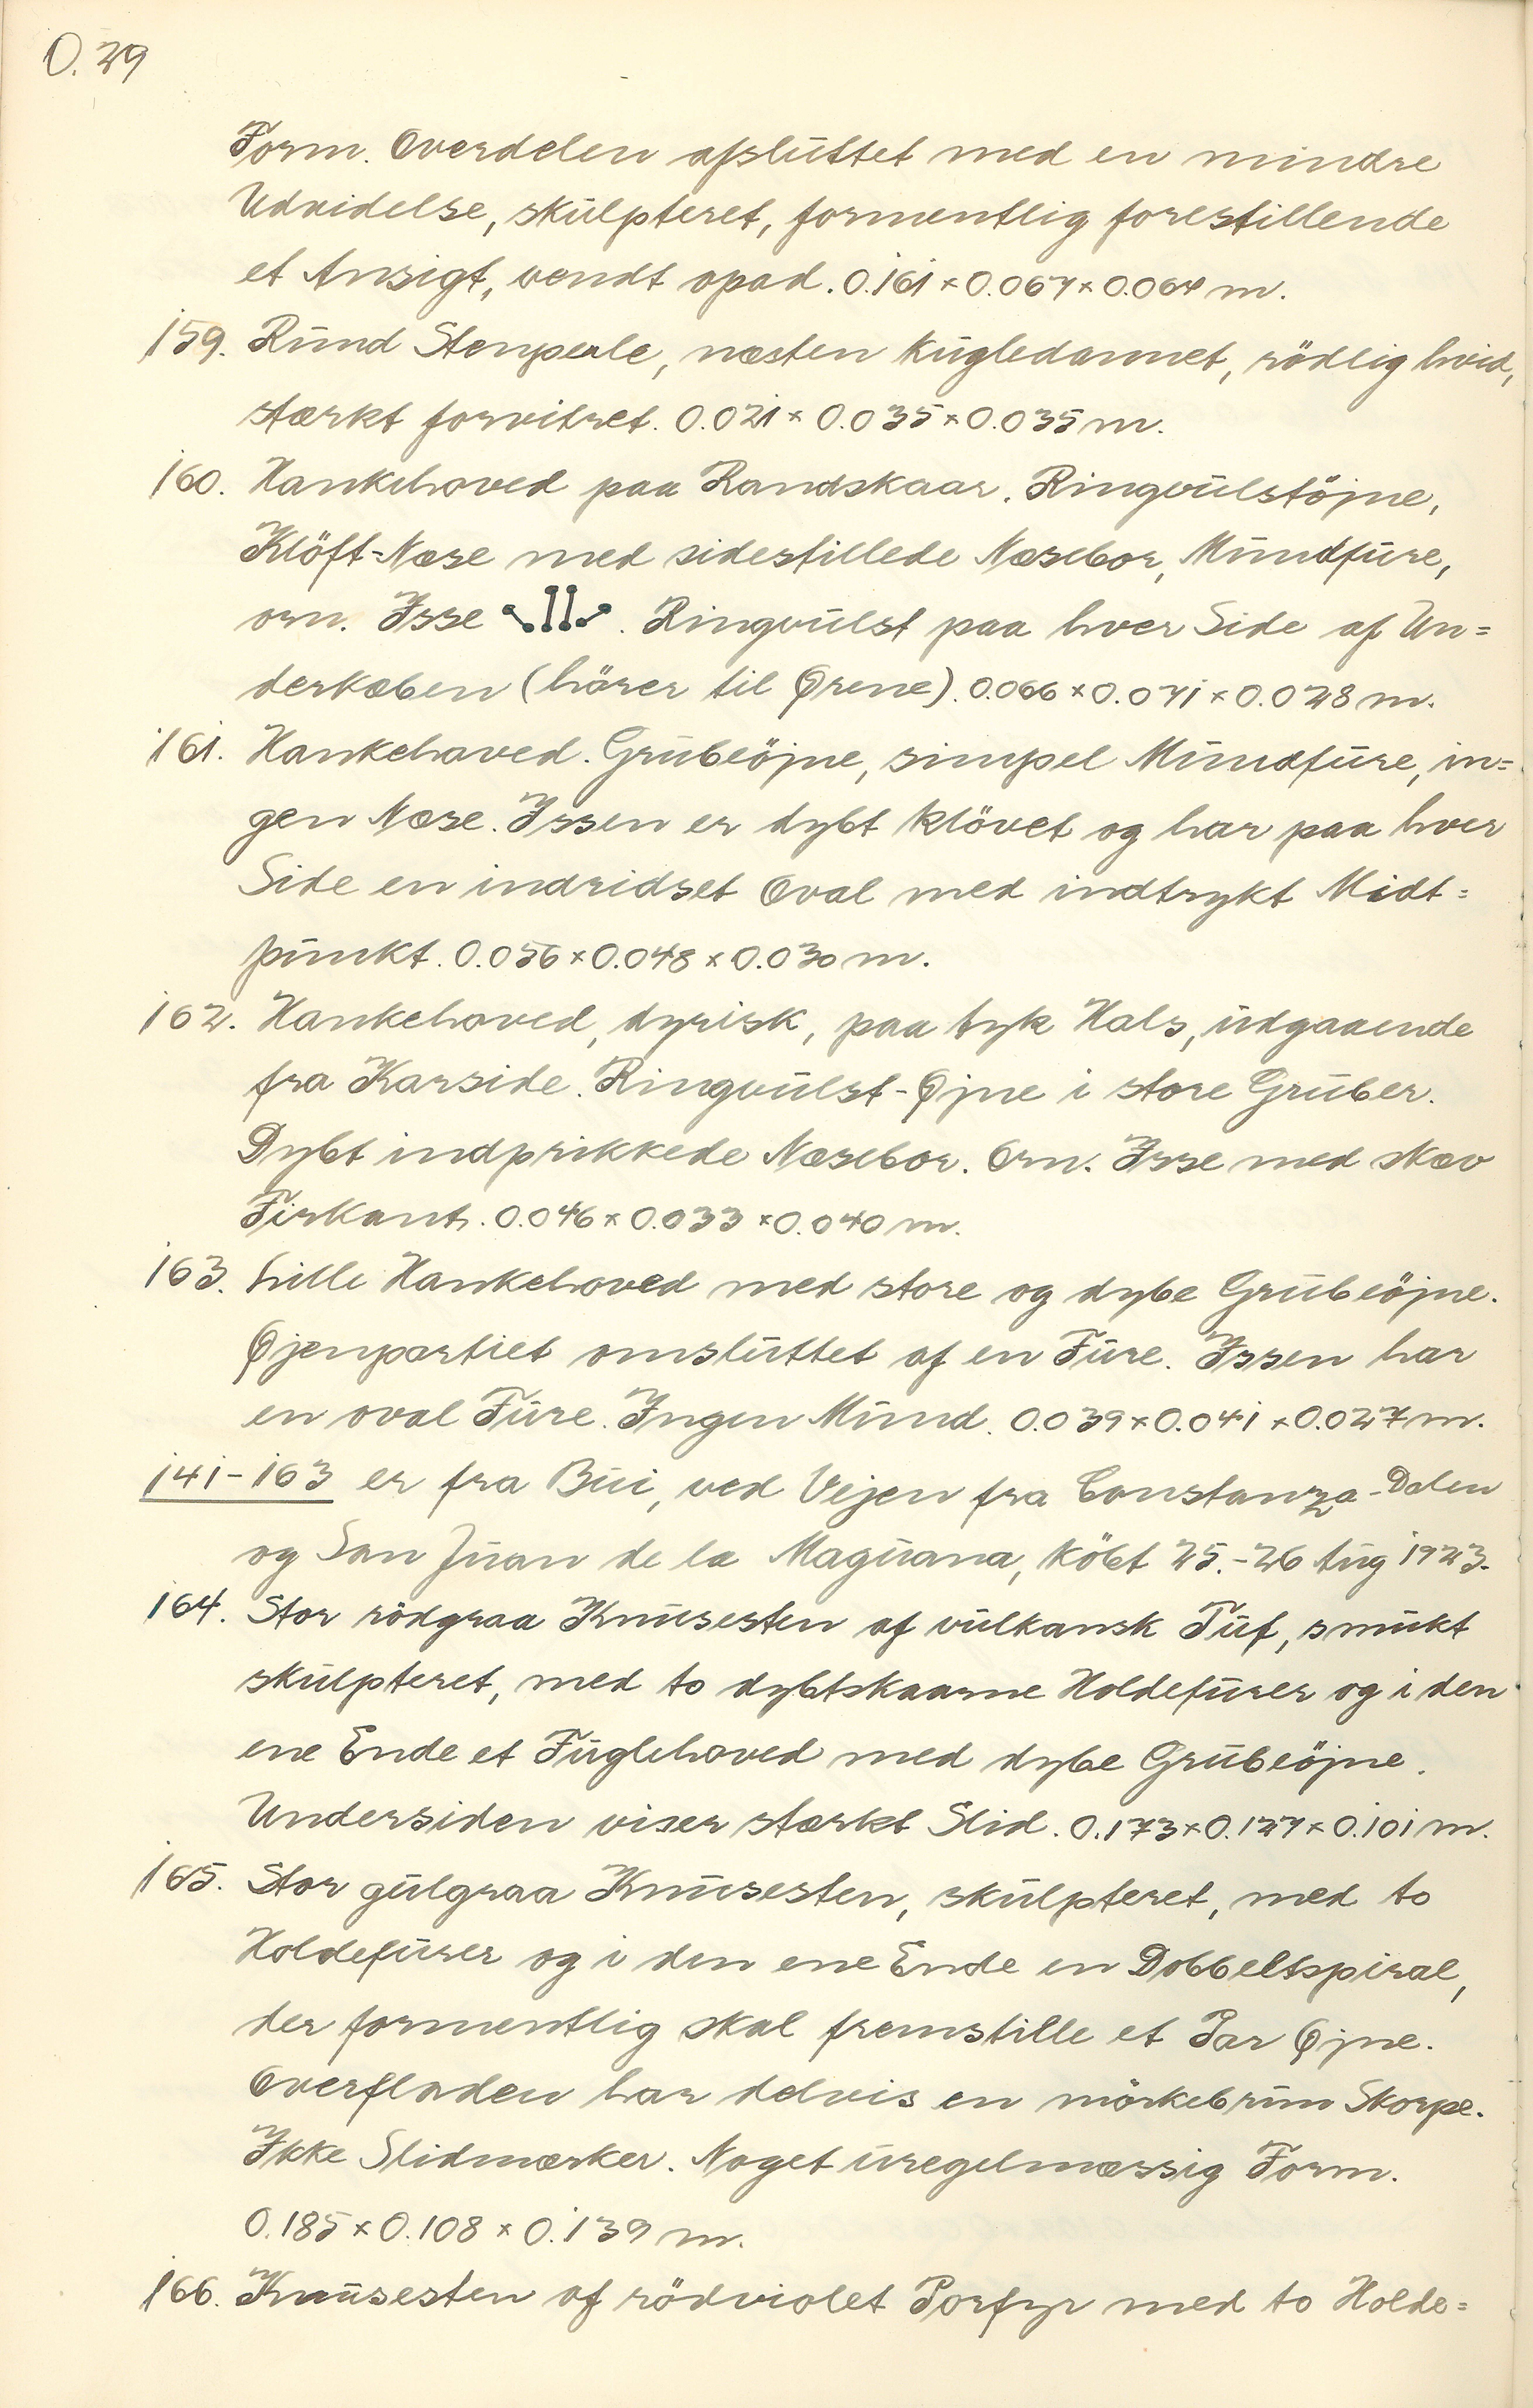 O. 29
Form. Overdelen afsluttet med en mindre
Udvidelse, skulpteret, formentlig forestillende
et Ansigt, vendt opad. 0.161 × 0.067 × 0.064 m.
159. Rund Stenperle, næsten kugledannet, rödlig hvid,
stærkt forvitret. 0.021 × 0.035 × 0.035 m.
160. Hankehoved paa Randskaar. Ringvulstöjne,
Klöft-Næse med sidestillede Næsebor, Mundfure,
orn. Isse . Ringvulst paa hver Side af Un=
derkæben (hörer til Ørene). 0.066 × 0.071 × 0.028 m.
161. Hankehoved. Grubeöjne, simpel Mundfure, in=
gen Næse. Issen er dybt klövet og har paa hver
Side en indridset Oval med indtrykt Midt=
punkt. 0.056 × 0.048 × 0.030 m.
162. Hankehoved, dyrisk, paa tyk Hals, udgaaende
fra Karside. Ringvulst-Øjne i store Gruber.
Dybt indprikkede Næsebor. Orn. Isse med skæv
Firkant. 0.046 × 0.033 × 0.040 m.
163. Lille Hankehoved med store og dybe Grubeöjne.
Øjenpartiet omsluttet af en Fure. Issen har
en oval Fure. Ingen Mund. 0.039 × 0.041 × 0.027 m.
141-163 er fra Bui, ved Vejen fra Constanza-Dalen
og San Juan de la Maguana, köbt 25.-26 Aug 1923.
164. Stor rödgraa Knusesten af vulkansk Tuf, smukt
skulpteret, med to dybtskaarne Holdefurer og i den
ene Ende et Fuglehoved med dybe Grubeöjne.
Undersiden viser stærkt Slid. 0.173 × 0.127 × 0.101 m.
165. Stor gulgraa Knusesten, skulpteret, med to
Holdefurer og i den ene Ende en Dobbeltspiral,
der formentlig skal fremstille et Par Øjne.
Overfladen har delvis en mörkebrun Skorpe.
Ikke Slidmærker. Noget uregelmæssig Form.
0.185 × 0.108 × 0.139 m.
166. Knusesten af rödviolet Porfyr med to Holde=